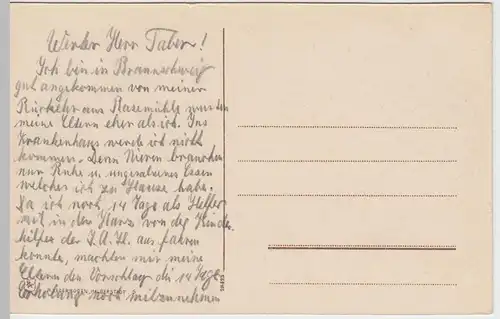 Werter Herr Taber!
Ich bin in Braunschweig
gut angekommen von meiner
Rückkehr aus Rasemühle wussten
meine Eltern eher als ich. Ins
Krankenhaus werde ich nicht
kommen. Denn Nieren brauchen
nur Ruhe u. ungesalzenes Essen
welches ich zu Hause habe.
Da ich noch, 14 Tage als Helfer
mit in den Harz von der Kinder
hilfe der J.A.H. aus fahren
konnte, machten mir meine
Eltern den Vorschlag die 14 Tage
Erholung noch mitzunehmen